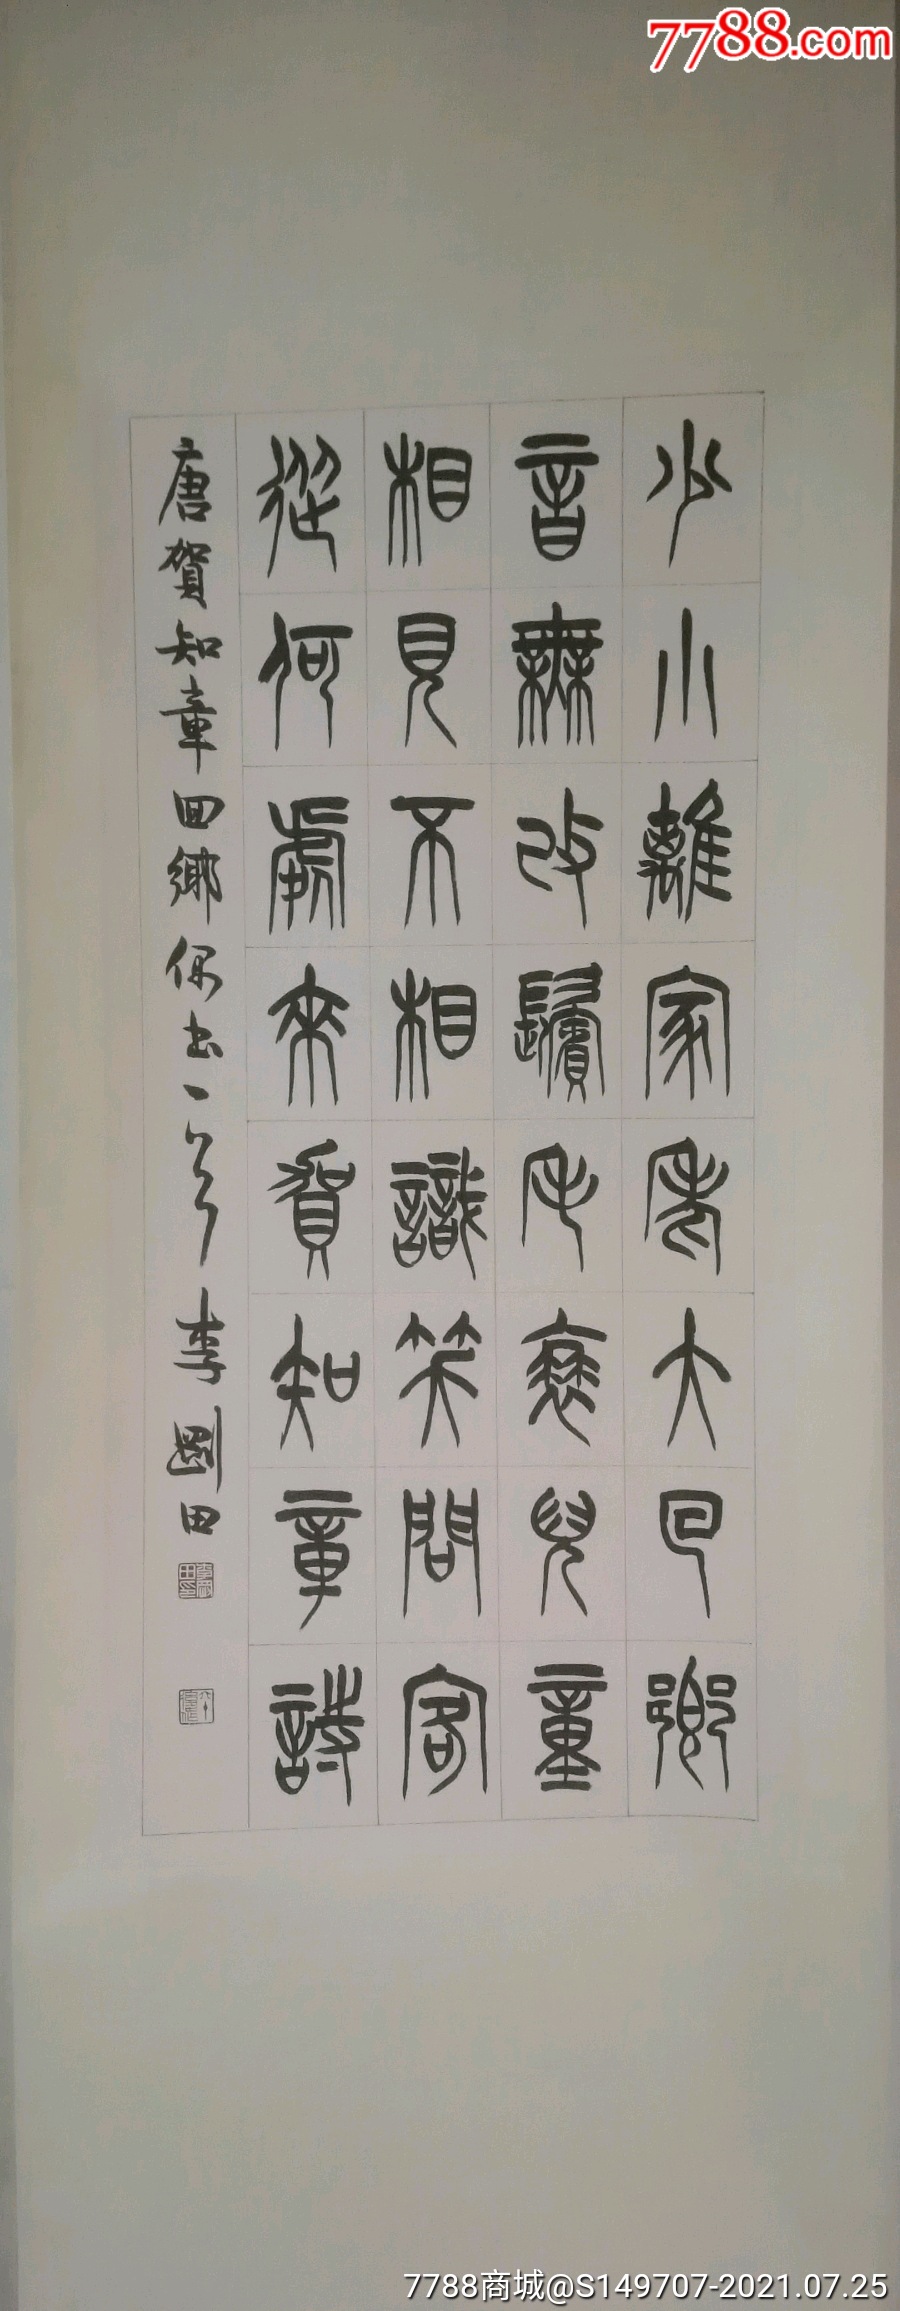 7788.com
少小離家老大回鄉
音無改鬢毛衰兒童
相見不相識笑問客
從何處來賀知章詩
唐賀知章回鄉偶书一首 李剛田
7788商城@S149707-2021.07.25